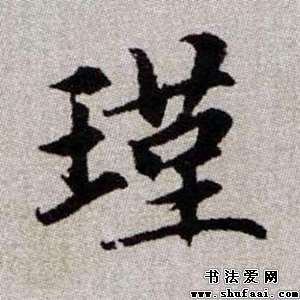 瑾
书法爱网
www.shufaai.com